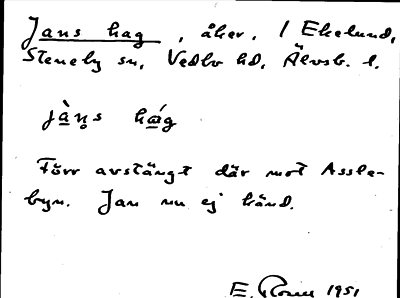 Jans hag, åker, i Ekelund,
Steneby sn, Vedbo hd, Älvsb. l.
jà̱n̥s há̱g
Förr avstängt där mot Assle-
byn. Jan nu ej känd.
E. 1951